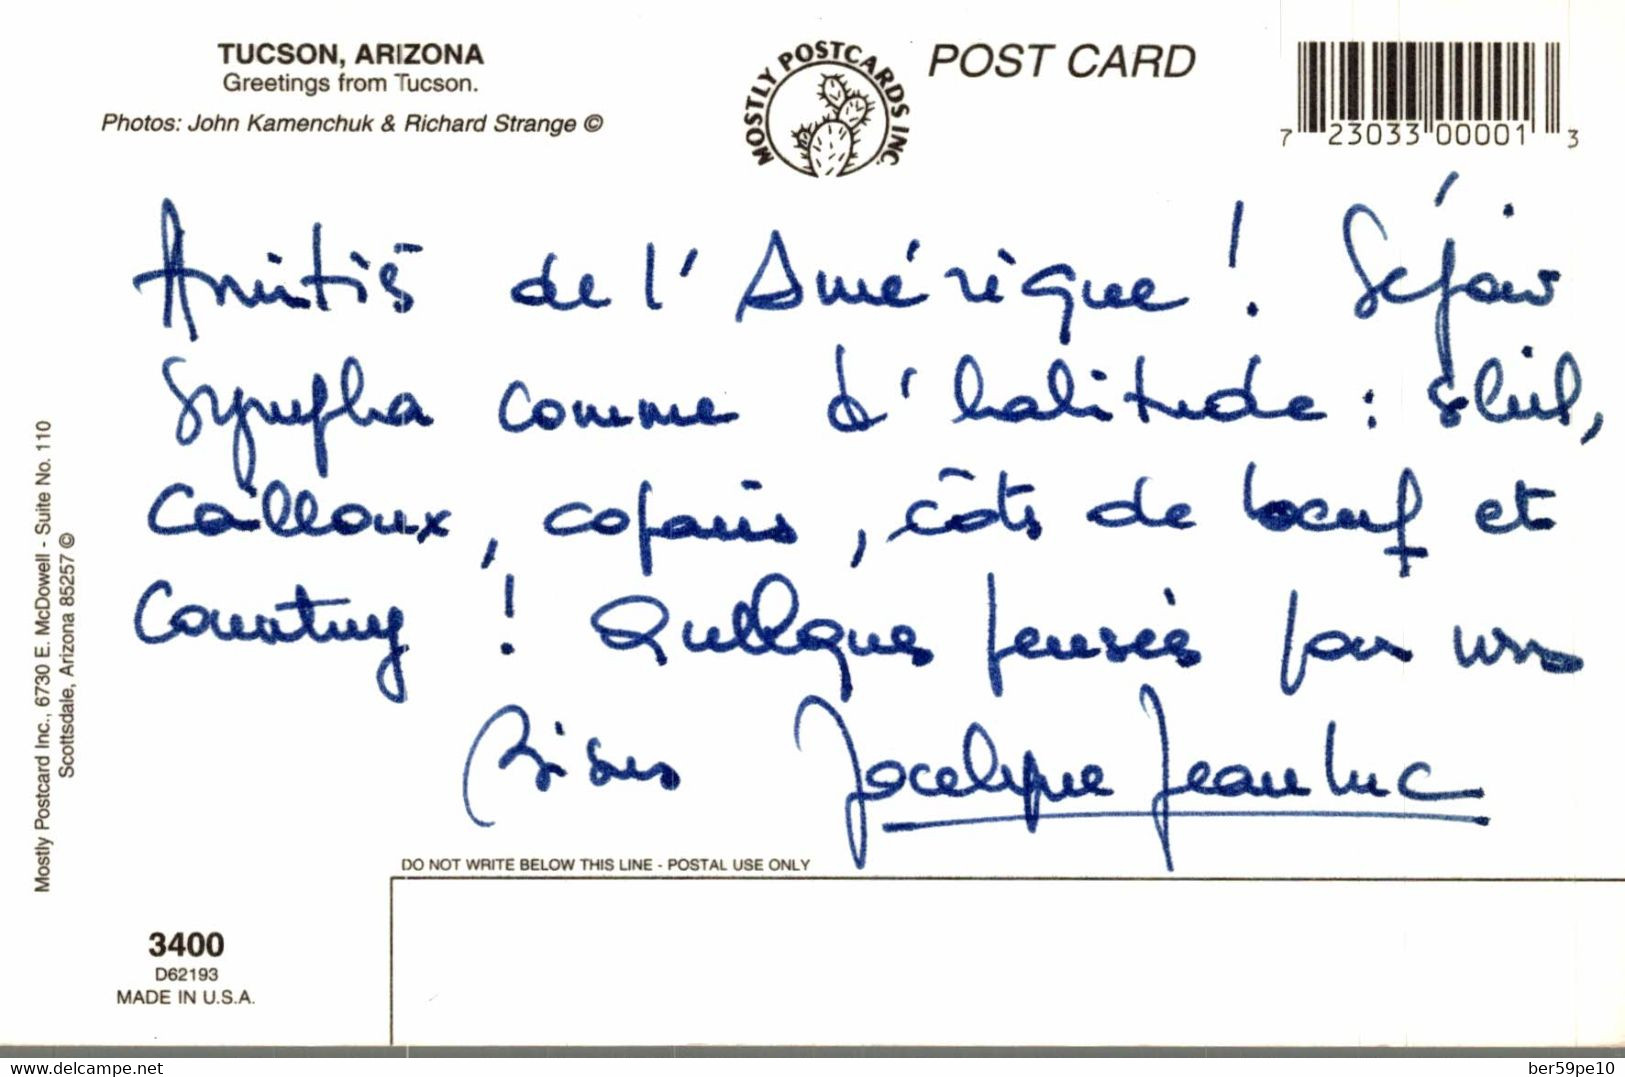 TUCSON, ARIZONA
Greetings from Tucson.
Photos: John Kamenchuk & Richard Strange ©
MOSTLY POSTCARDS INC.
POST CARD
7 23033 00001 3
Amitiés de l'Amérique ! Séjour
Sympha comme d'habitude : soleil,
Cailloux, copains, côtes de boeuf et
Country ! Quelques pensées pour vous
Bises Jocelyne Jean Luc
Mostly Postcard Inc., 6730 E. McDowell - Suite No. 110
Scottsdale, Arizona 85257 ©
DO NOT WRITE BELOW THIS LINE - POSTAL USE ONLY
3400
D62193
MADE IN U.S.A.
www.delcampe.net
ber59pe10